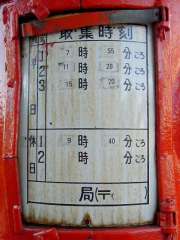 取集時刻
平日
1 7時55分ごろ
2 11時20分ごろ
3 15時20分ごろ
休日
1 9時40分ごろ
2 時 分ごろ
局(〒